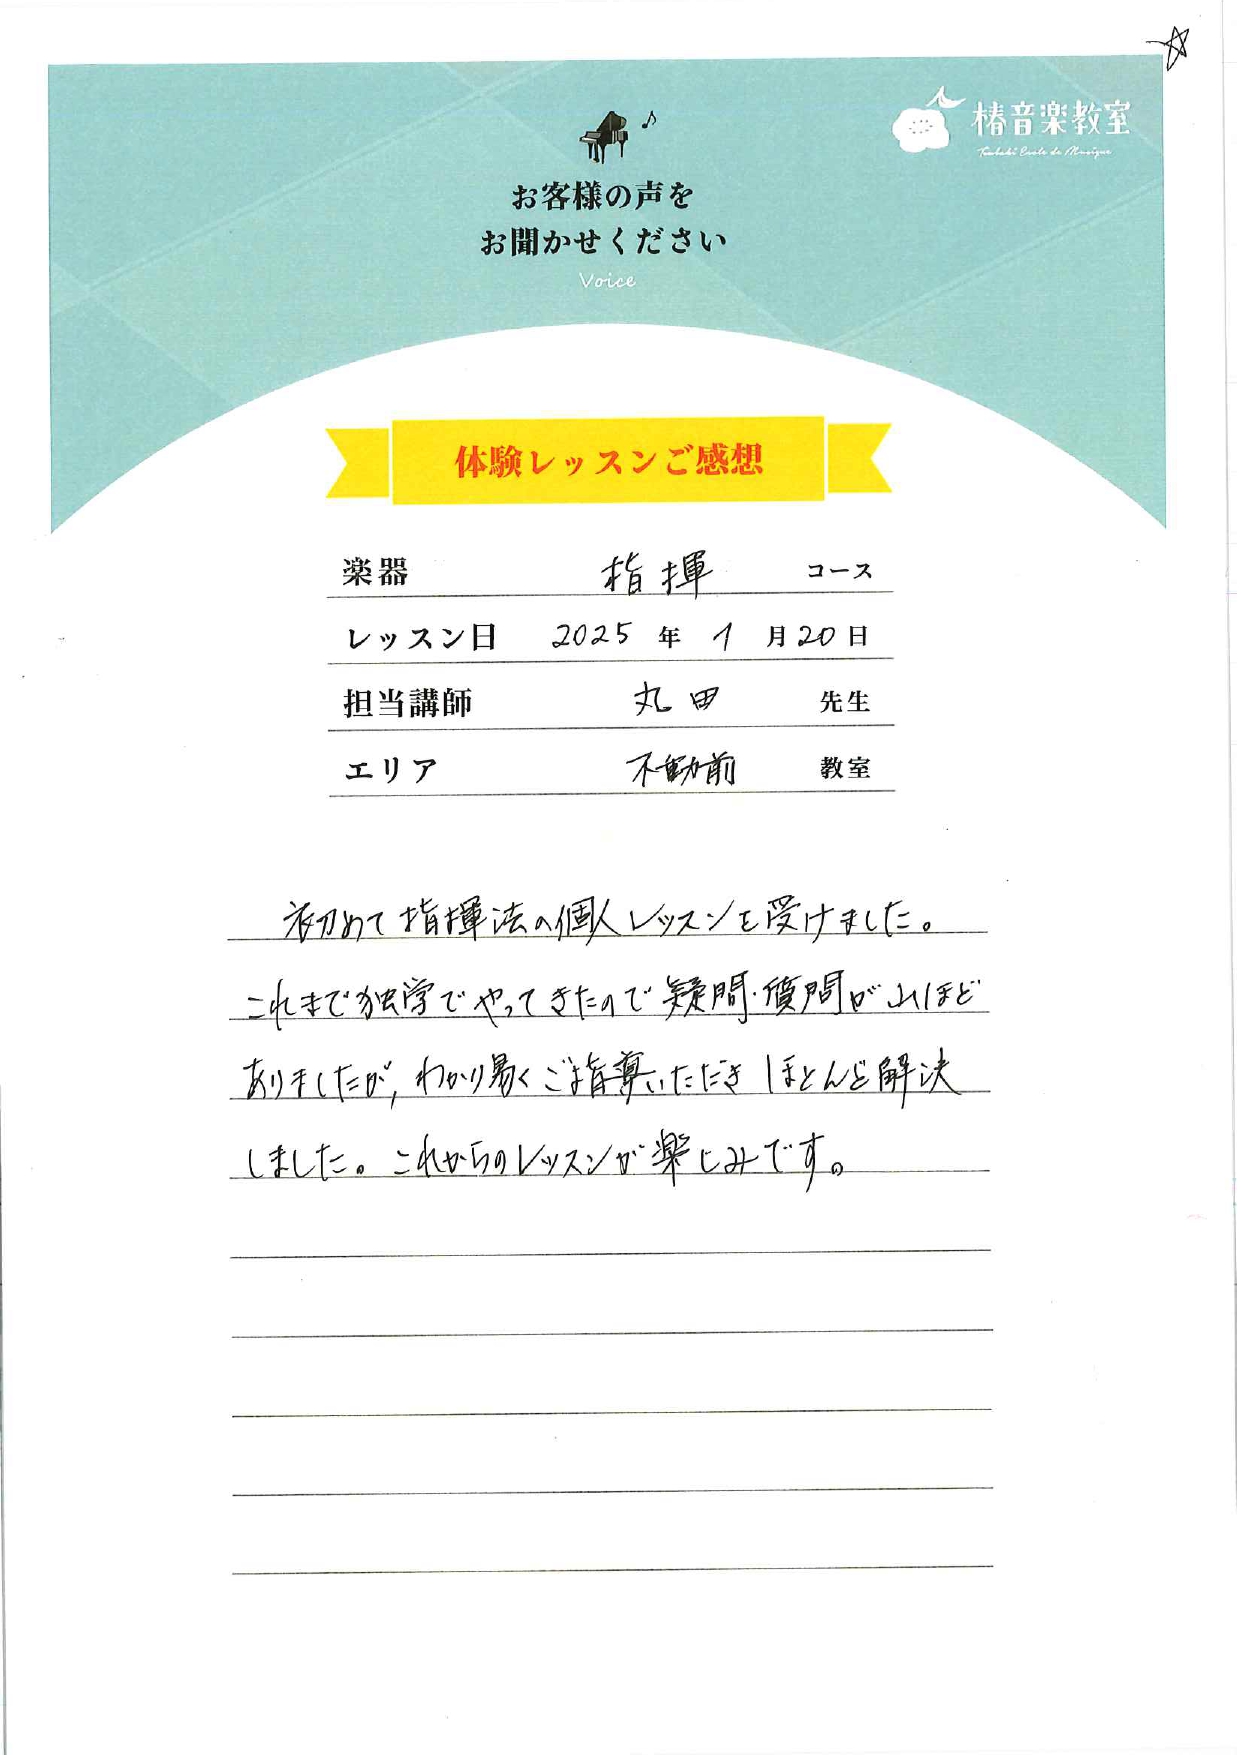 椿音楽教室
Tsubaki Ecole de Musique
お客様の声を
お聞かせください
Voice
体験レッスンご感想
楽器 指揮 コース
レッスン日 2025 年 1 月 20 日
担当講師 丸田 先生
エリア 不動前 教室
初めて指揮法の個人レッスンを受けました。
これまで独学でやってきたので疑問・質問が山ほど
ありましたが，わかり易くご指導いただきほとんど解決
しました。これからのレッスンが楽しみです。